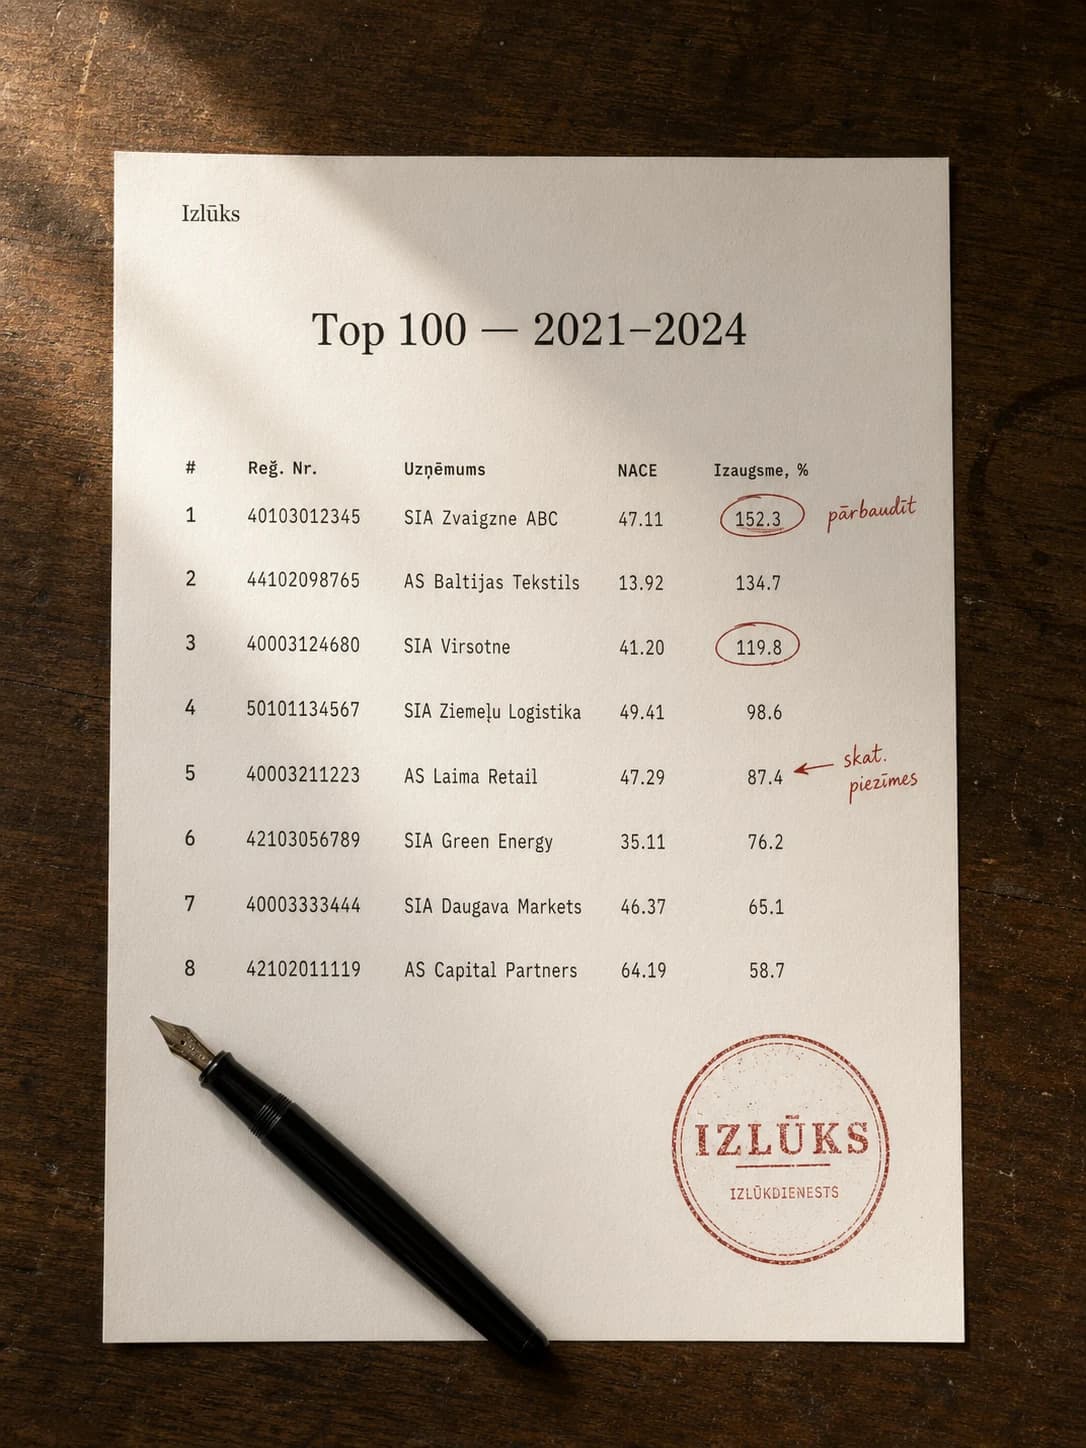 Izlūks
Top 100 — 2021–2024
# Reğ. Nr. Uzņēmums NACE Izaugsme, %
1 40103012345 SIA Zvaigzne ABC 47.11 152.3 pārbaudīt
2 44102098765 AS Baltijas Tekstils 13.92 134.7
3 40003124680 SIA Virsotne 41.20 119.8
4 50101134567 SIA Ziemeļu Logistika 49.41 98.6
5 40003211223 AS Laima Retail 47.29 87.4 skat.
piezīmes
6 42103056789 SIA Green Energy 35.11 76.2
7 40003333444 SIA Daugava Markets 46.37 65.1
8 42102011119 AS Capital Partners 64.19 58.7
IZLŪKS
IZLŪKDIENESTS